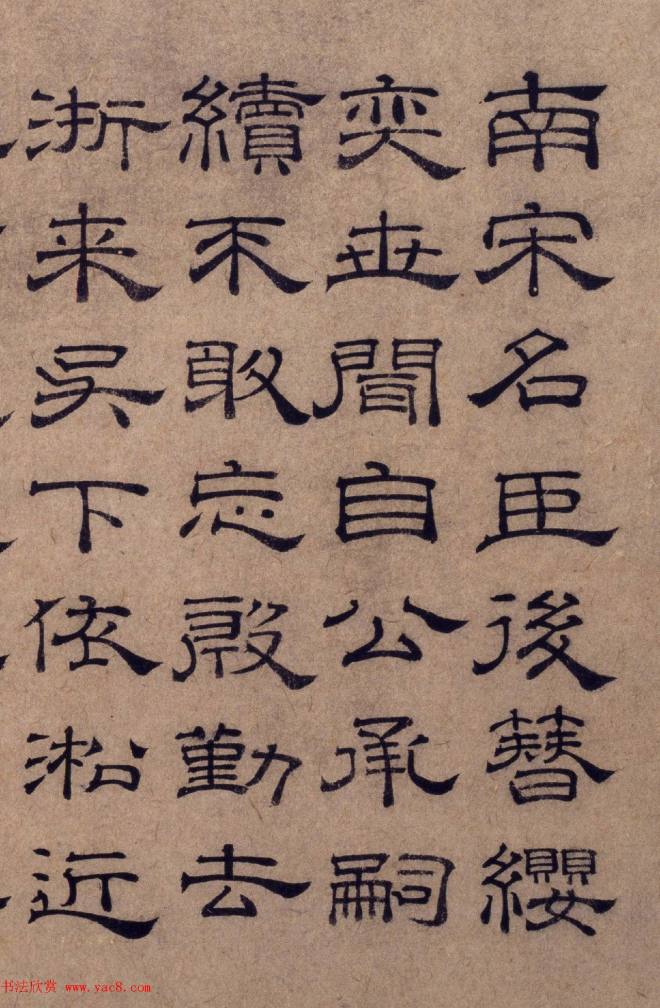 南宋名臣後簪纓
奕世間自公承嗣
續不敢忘殷勤去
浙来吳下依淞近
书法欣赏 www.yac8.com